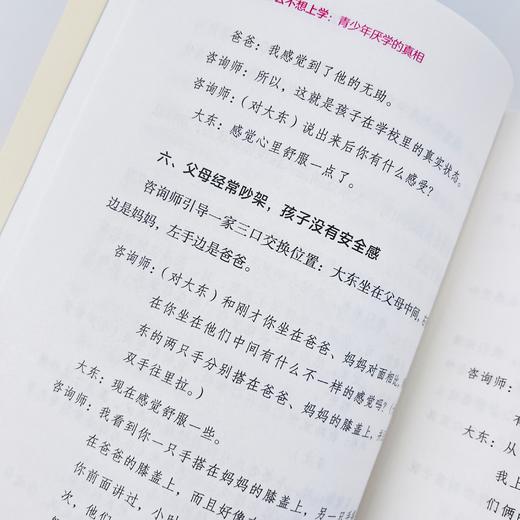 么不想上学：青少年厌学的真相
爸爸：我感觉到了他的无助。
咨询师：所以，这就是孩子在学校里的真实状态。
咨询师：（对大东）说出来后你有什么感受？
大东：感觉心里舒服一点了。
六、父母经常吵架，孩子没有安全感
咨询师引导一家三口交换位置：大东坐在父母中间，
边是妈妈，左手边是爸爸。
咨询师：（对大东）和刚才你坐在爸爸、妈妈对面相比，
在你坐在他们中间有什么不一样的感觉吗？
东的两只手分别搭在爸爸、妈妈的膝盖上，
双手往里拉。）
大东：现在感觉舒服一些。
咨询师：我看到你一只手搭在妈妈的膝盖上，另一只
在爸爸的膝盖上，而且好像
你前面讲过，小时
次，他们
咨询师：
大东：从
我上
们俩